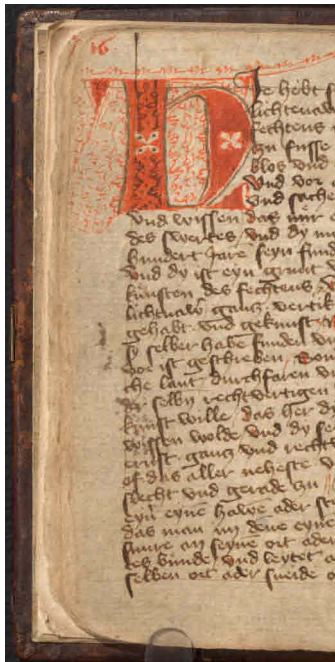 16
Hie hebt s
lichtenaw
fechtens
czu fusse
blos vnd
Vnd vor
vnd sache
vnd wissen das nür
des swertes / vnd dy m
hundert Jare seyn fund
vnd dy ist eyn grunt v
künsten des fechtens /
lichtnaw gancz vertik
gehabt vnd gekunst
sy selber habe funden vn
vor ist geschreben Son
che lant durchfaren v
der selbn rechtvertigen
kunst wille / das her d
wissen wolde Vnd dy se
ernst gancz vnd rechtv
of das aller neheste v
slecht vnd gerade czu
eyner eyne ader st
das man im dene eyne
snure an seyne ort ader
tes bunde / vnd leytet a
selben ort ader sneide